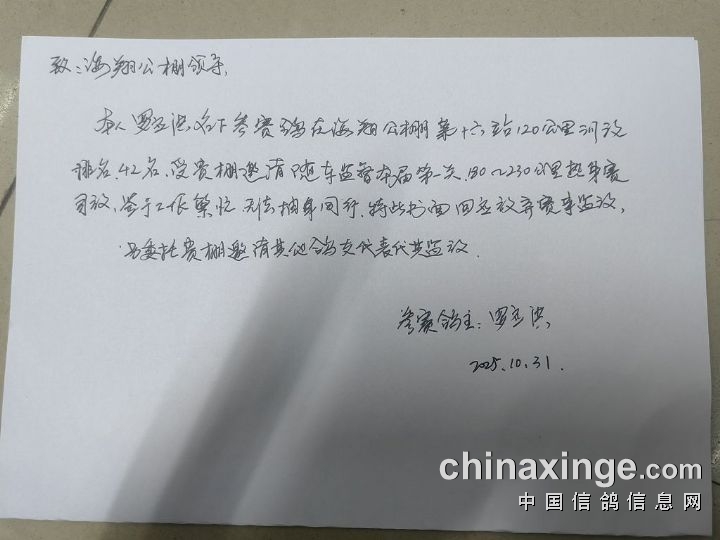 致：海翔公棚领导，
本人罗 洪名下参赛鸽在海翔公棚第十六站120公里训放
排名42名，受赛棚邀请随车监督本届第一关，180～230公里热身赛
司放，鉴于工作繁忙 无法抽身同行，特此书面回 放弃赛事监放，
另委托赛棚邀请其他鸽友代表代其监放．
参赛鸽主：罗 洪
2025.10.31.
chinaxinge.com
中国信鸽信息网